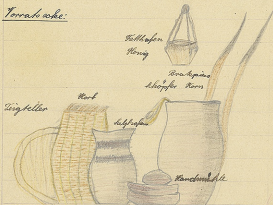 Vorratsecke:
Fetthafen
Honig
Bratspiess
Schöpfer Korn
Korb
Teigteller
Salzhafen
Handmühle